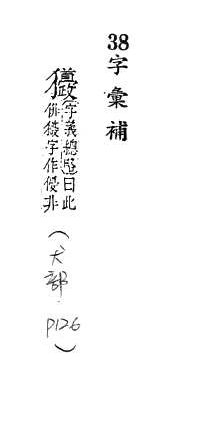 38字彙補
字義總曰此
俳字作非
（犬部·P126）